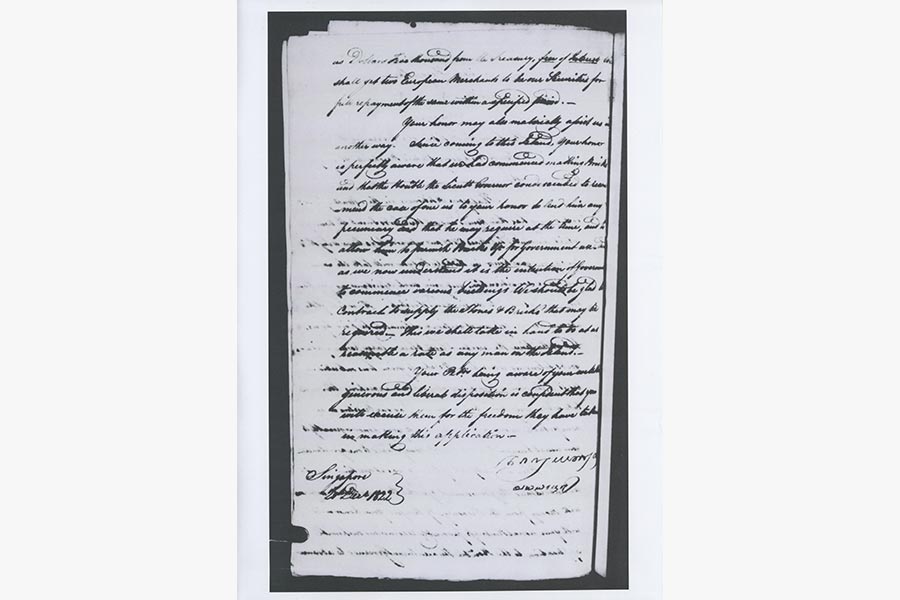 as Dollars six thousand from the Treasury, free of Interest
shall get two European Merchants to be our Securities for
full repayment of the same within a specified period. —
Your honor may also materially assist us in
another way. Since coming to this Island, Your honor
is perfectly aware that we had commenced making Bricks
and that the Honble the Lieutt Governor condescended to
-mend the case of one us to your honor to lend him any
pecuniary aid that he may require at the time, and to
allow him to furnish Bricks &c for Government
as we now understand it is the intention of
to commence various buildings We should be glad to
Contract to supply the Stones & Bricks that may be
required — This we shall take in hand to do at as
reasonable a rate as any man in the Island. —
Your being aware of your
generous and liberal disposition is confident that you
will excuse them for the freedom they have taken
in making this application —
Singapore
Decr 1822